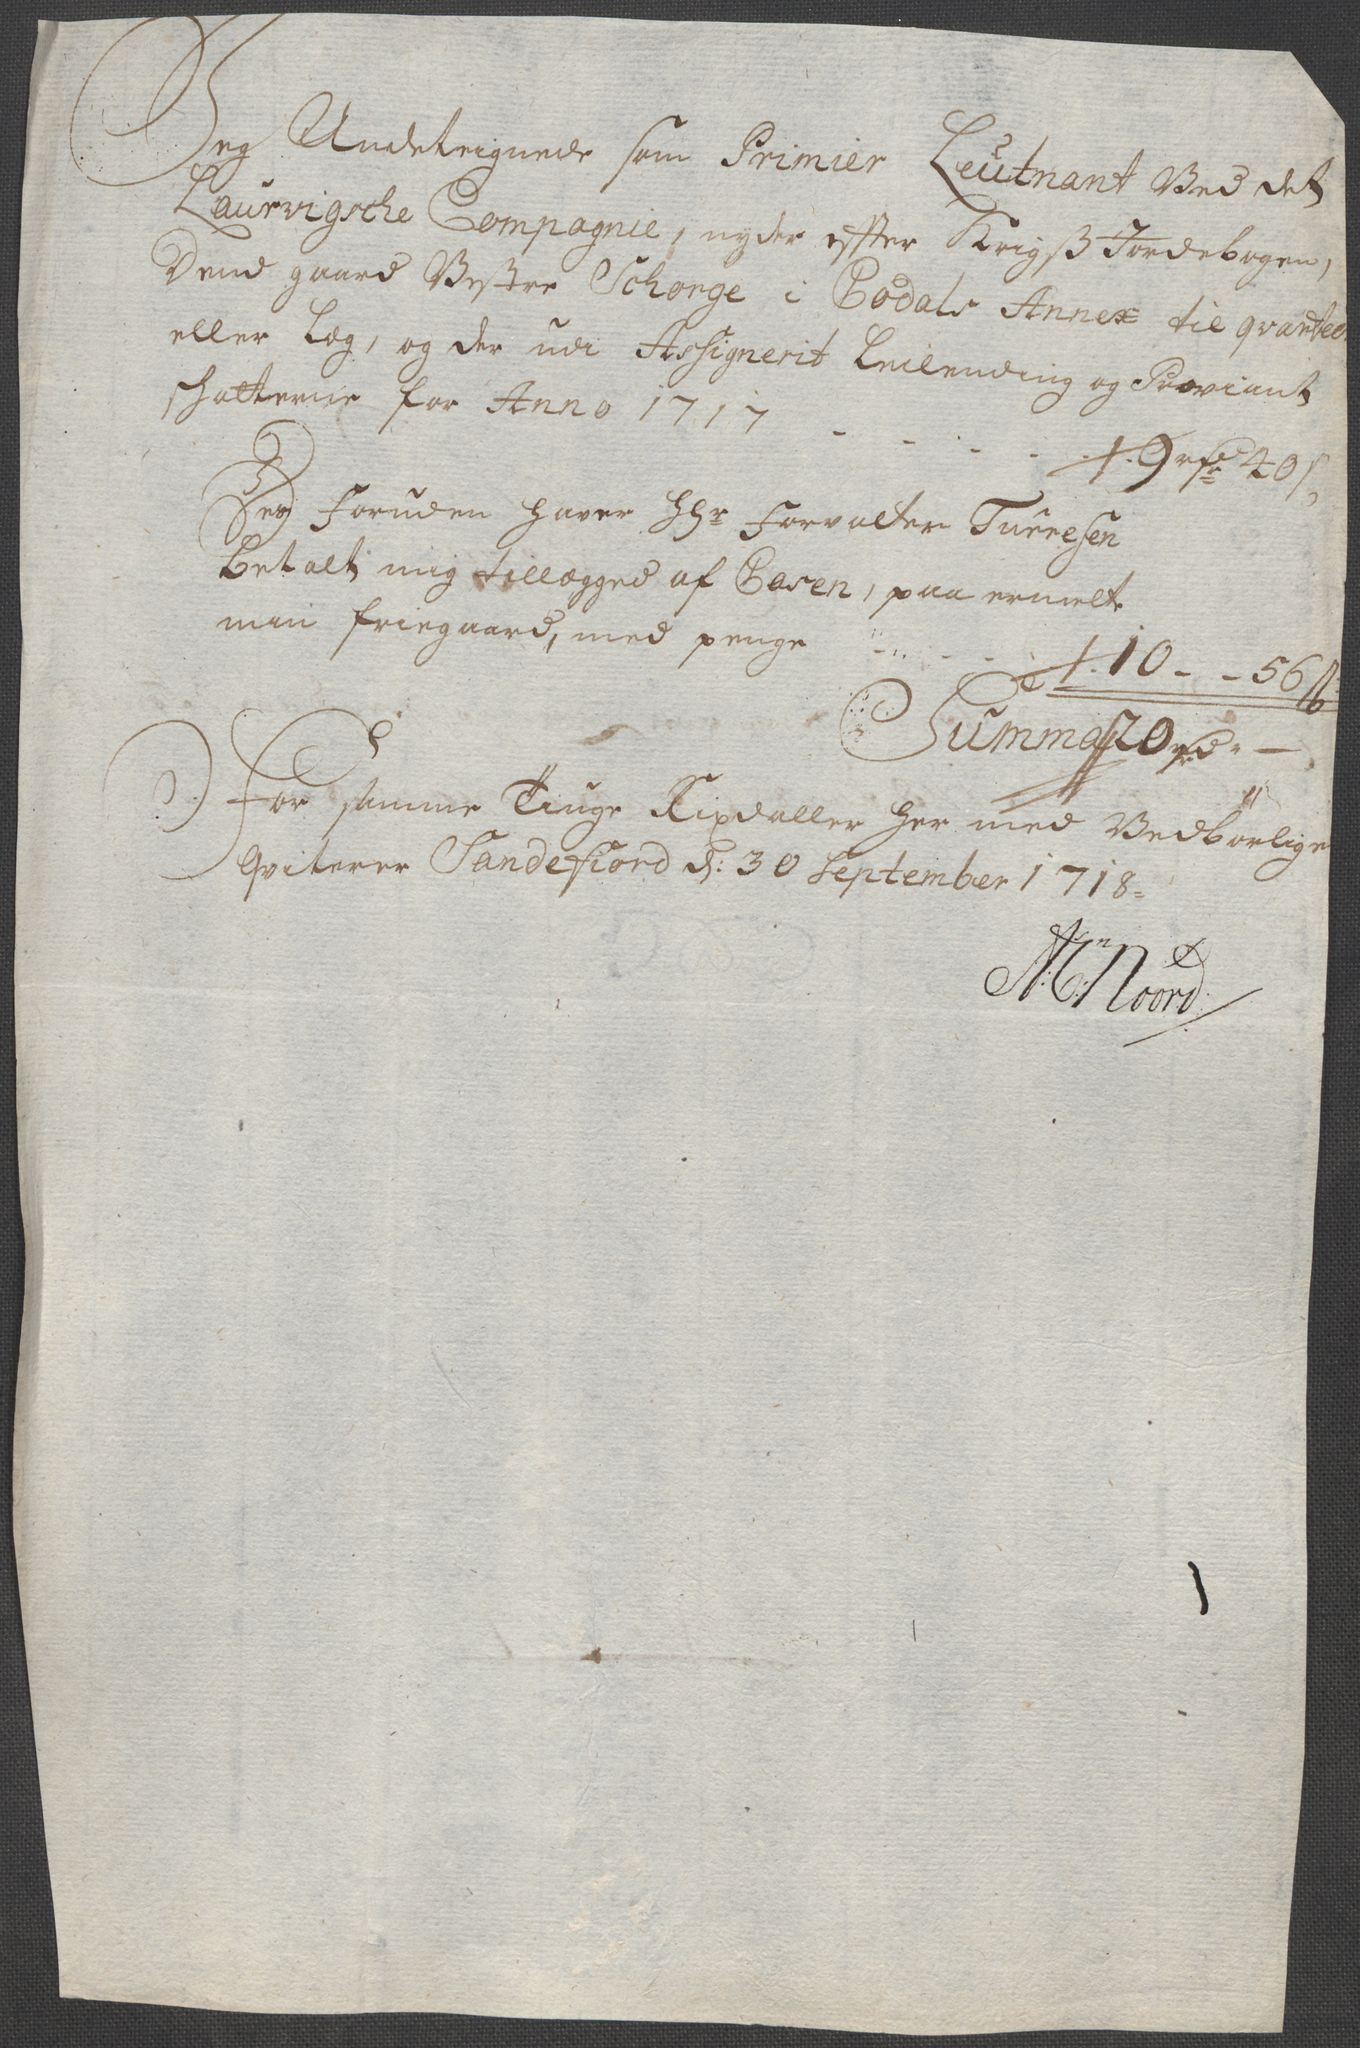 Jeg Undeteignede som Primier Leutnant Ved det
Laurvigsche Compagnie, nyder effter Krigß Jordebogen,
Dend gaard Vestre Schorge i Bodals Annex til qvarteer
eller Læg, og der udi Assignerit Leilending og Proviant
schatterne for Anno 1717 - - - - - 9 rdr 40 s,
Deß Foruden haver Hr Forvalter Turresen
betalt mig tillægged af Casen, paa ermelte
min friegaard, med penge - - - - 10 - - 56 ß
Summa 20 rdr - —
For samme Tiuge Rixdaller her med Vedbörlige
Qviterer Sandefiord d: 30 September 1718 -
M: Noord